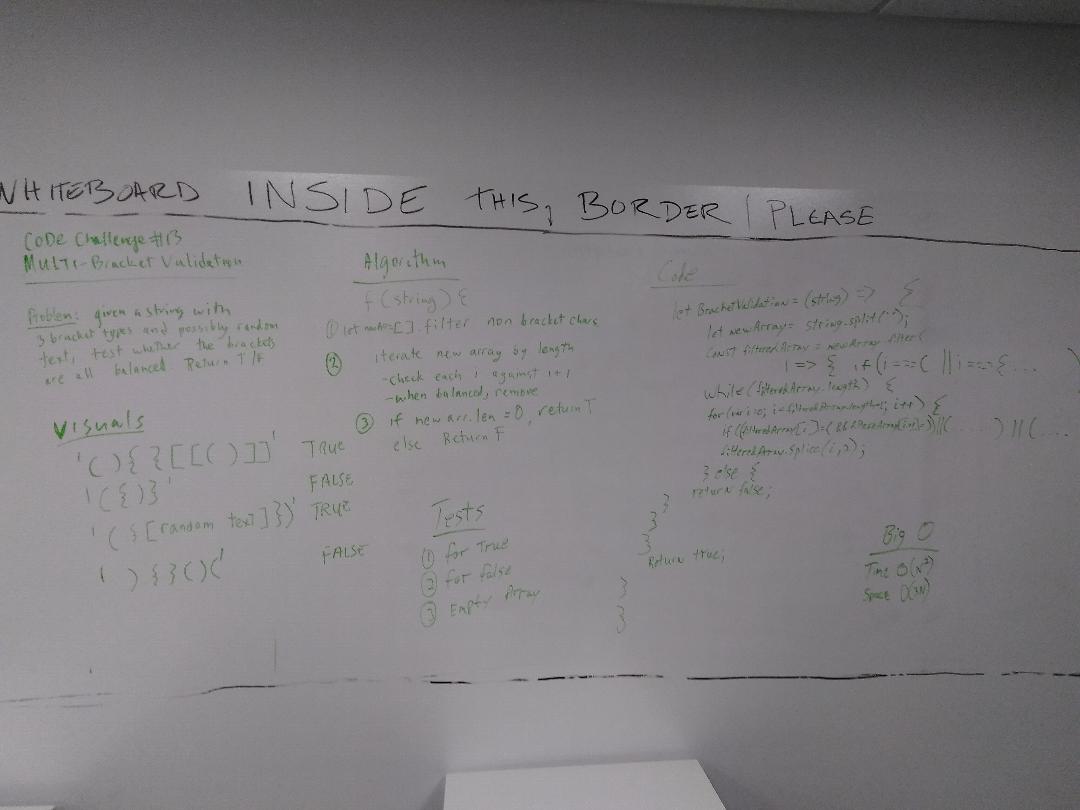 WHITEBOARD INSIDE THIS, BORDER | PLEASE
CODE Challenge #13
MULTI-Bracket Validation
Problem: given a string with
3 bracket types and possibly random
text, test whether the brackets
are all balanced. Return T/F
VISUALS
'(){{[[[()]]' TRUE
'({)}' FALSE
'({[random text]})' TRUE
')}{}()(' FALSE
Algorithm
f(string) {
① let newArr=[].filter non bracket chars
② iterate new array by length
-check each i against i+1
-when balanced, remove
③ if new arr.len = 0, return T
else Return F
Tests
① for True
② for false
③ Empty Array
Code
let BracketValidation = (string) => {
let newArray = string.split('');
const filteredArray = newArray.filter(
i => { if(i===( || i==={...
while(filteredArray.length) {
for(var i=0; i<filteredArray.length; i++) {
if((filteredArray[i]=(&&filteredArray[i+1]=))||(....)||(...
filteredArray.splice(i,2);
} else {
return false;
}
}
}
Return true;
}
}
Big O
Time O(N²)
Space O(3N)